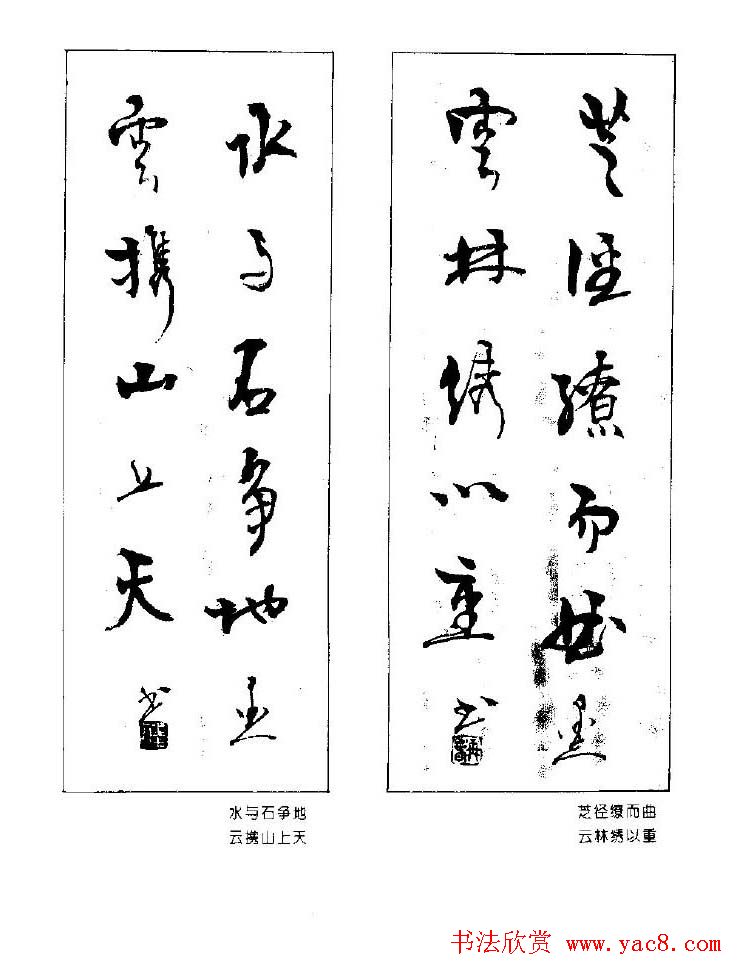 芝径繚而
雲林绣以重书
水与石争地
雲携山上天书
芝径缭而曲
云林绣以重
水与石争地
云携山上天
书法欣赏 www.yac8.com